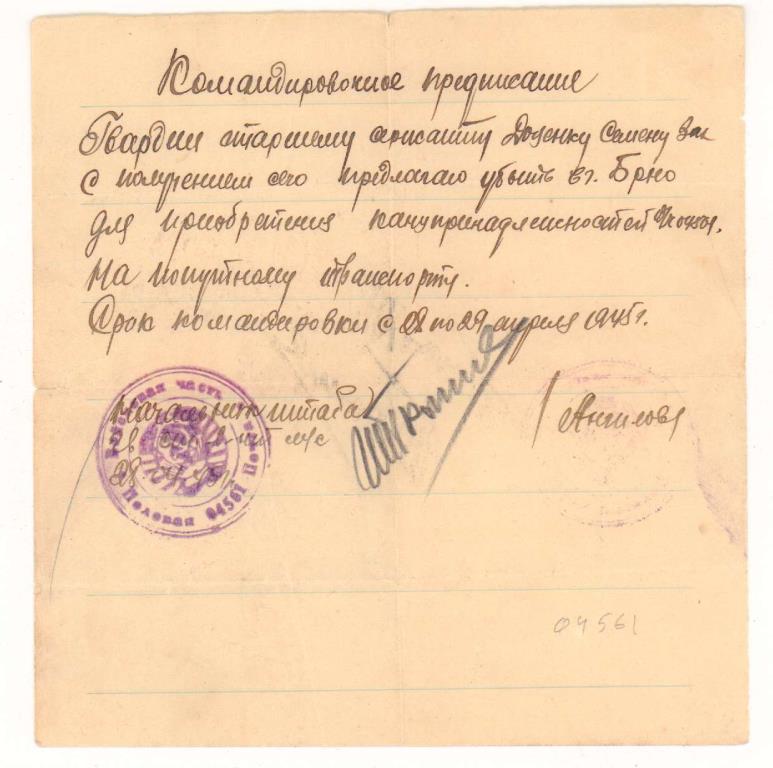 Командировочное предписание
Гвардии старшему сержанту Доценку Семену Зах
с получением сего предлагаю убыть в г. Брно
для приобретения канцпринадлежностей
На попутному транспорту.
Срок командировки с 28 по 29 апреля 1945 г.
Начальник штаба
28
Полевая почта 04561
Войсковая часть
04561